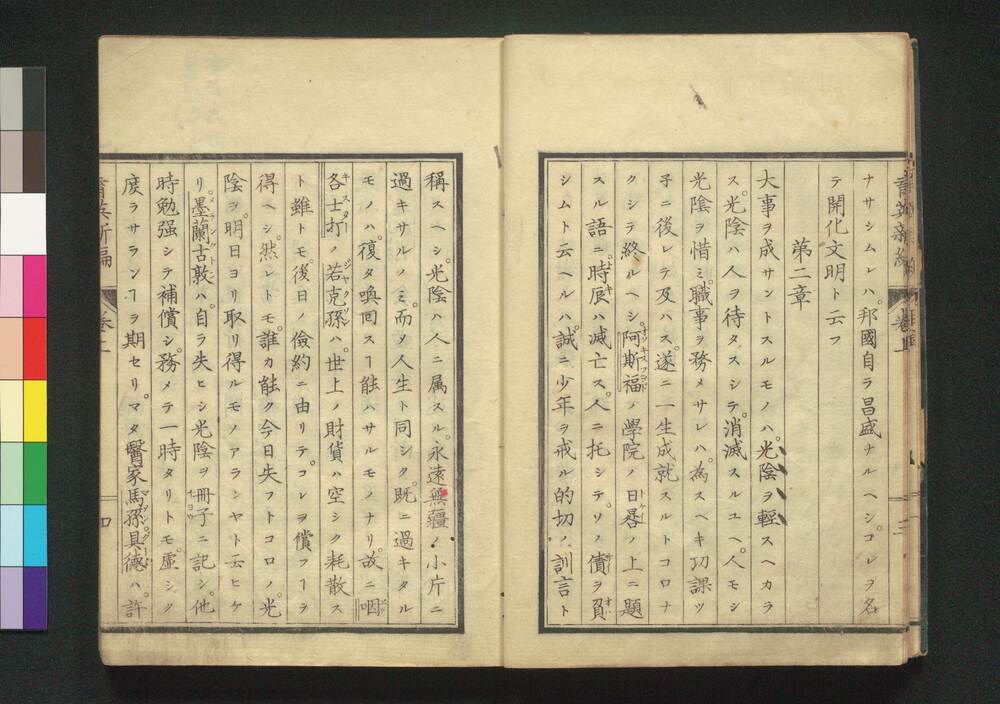 ナサシムレハ。邦國自ラ昌盛ナルヘシ。コレヲ名
テ開化文明ト云フ
第二章
大事ヲ成サントスルモノハ。光陰ヲ輕スヘカラ
ス。光陰ハ人ヲ待タスシテ。消滅スルユヘ。人モシ
光陰ヲ惜ミ。職事ヲ務メサレハ。為スヘキ功課ツ
子ニ後レテ及ハス。遂ニ一生成就スルトコロナ
クシテ終ルヘシ。阿斯福ノ學院ノ日晷ノ上ニ題
スル語ニ。時辰ハ滅亡ス。人ニ托シテ。ソノ債ヲ負
シムト云ヘルハ。誠ニ少年ヲ戒ルノ的切ノ訓言ト
稱スヘシ。光陰ハ人ニ属スル。永遠無疆ノ小片ニ
過キサルノミ。而メ人生ト同シク。既ニ過キタル
モノハ。復タ喚回スヿ能ハサルモノナリ。故ニ咽
各士打ノ若克孫ハ。世上ノ財貨ハ空シク耗散ス
ト雖トモ。後日ノ儉約ニ由リテ。コレヲ償フヿヲ
得ヘシ。然レトモ。誰カ能ク今日失フトコロノ光
陰ヲ。明日ヨリ取リ得ルモノアランヤト云ヒケ
リ。墨蘭古敦ハ。自ラ失ヒシ光陰ヲ冊子ニ記シ。他
時勉强シテ補償シ。務メテ一時タリトモ。虚シク
度ラサランヿヲ期セリ。マタ醫家馬孫具德ハ。許
育英新編
卷上
四